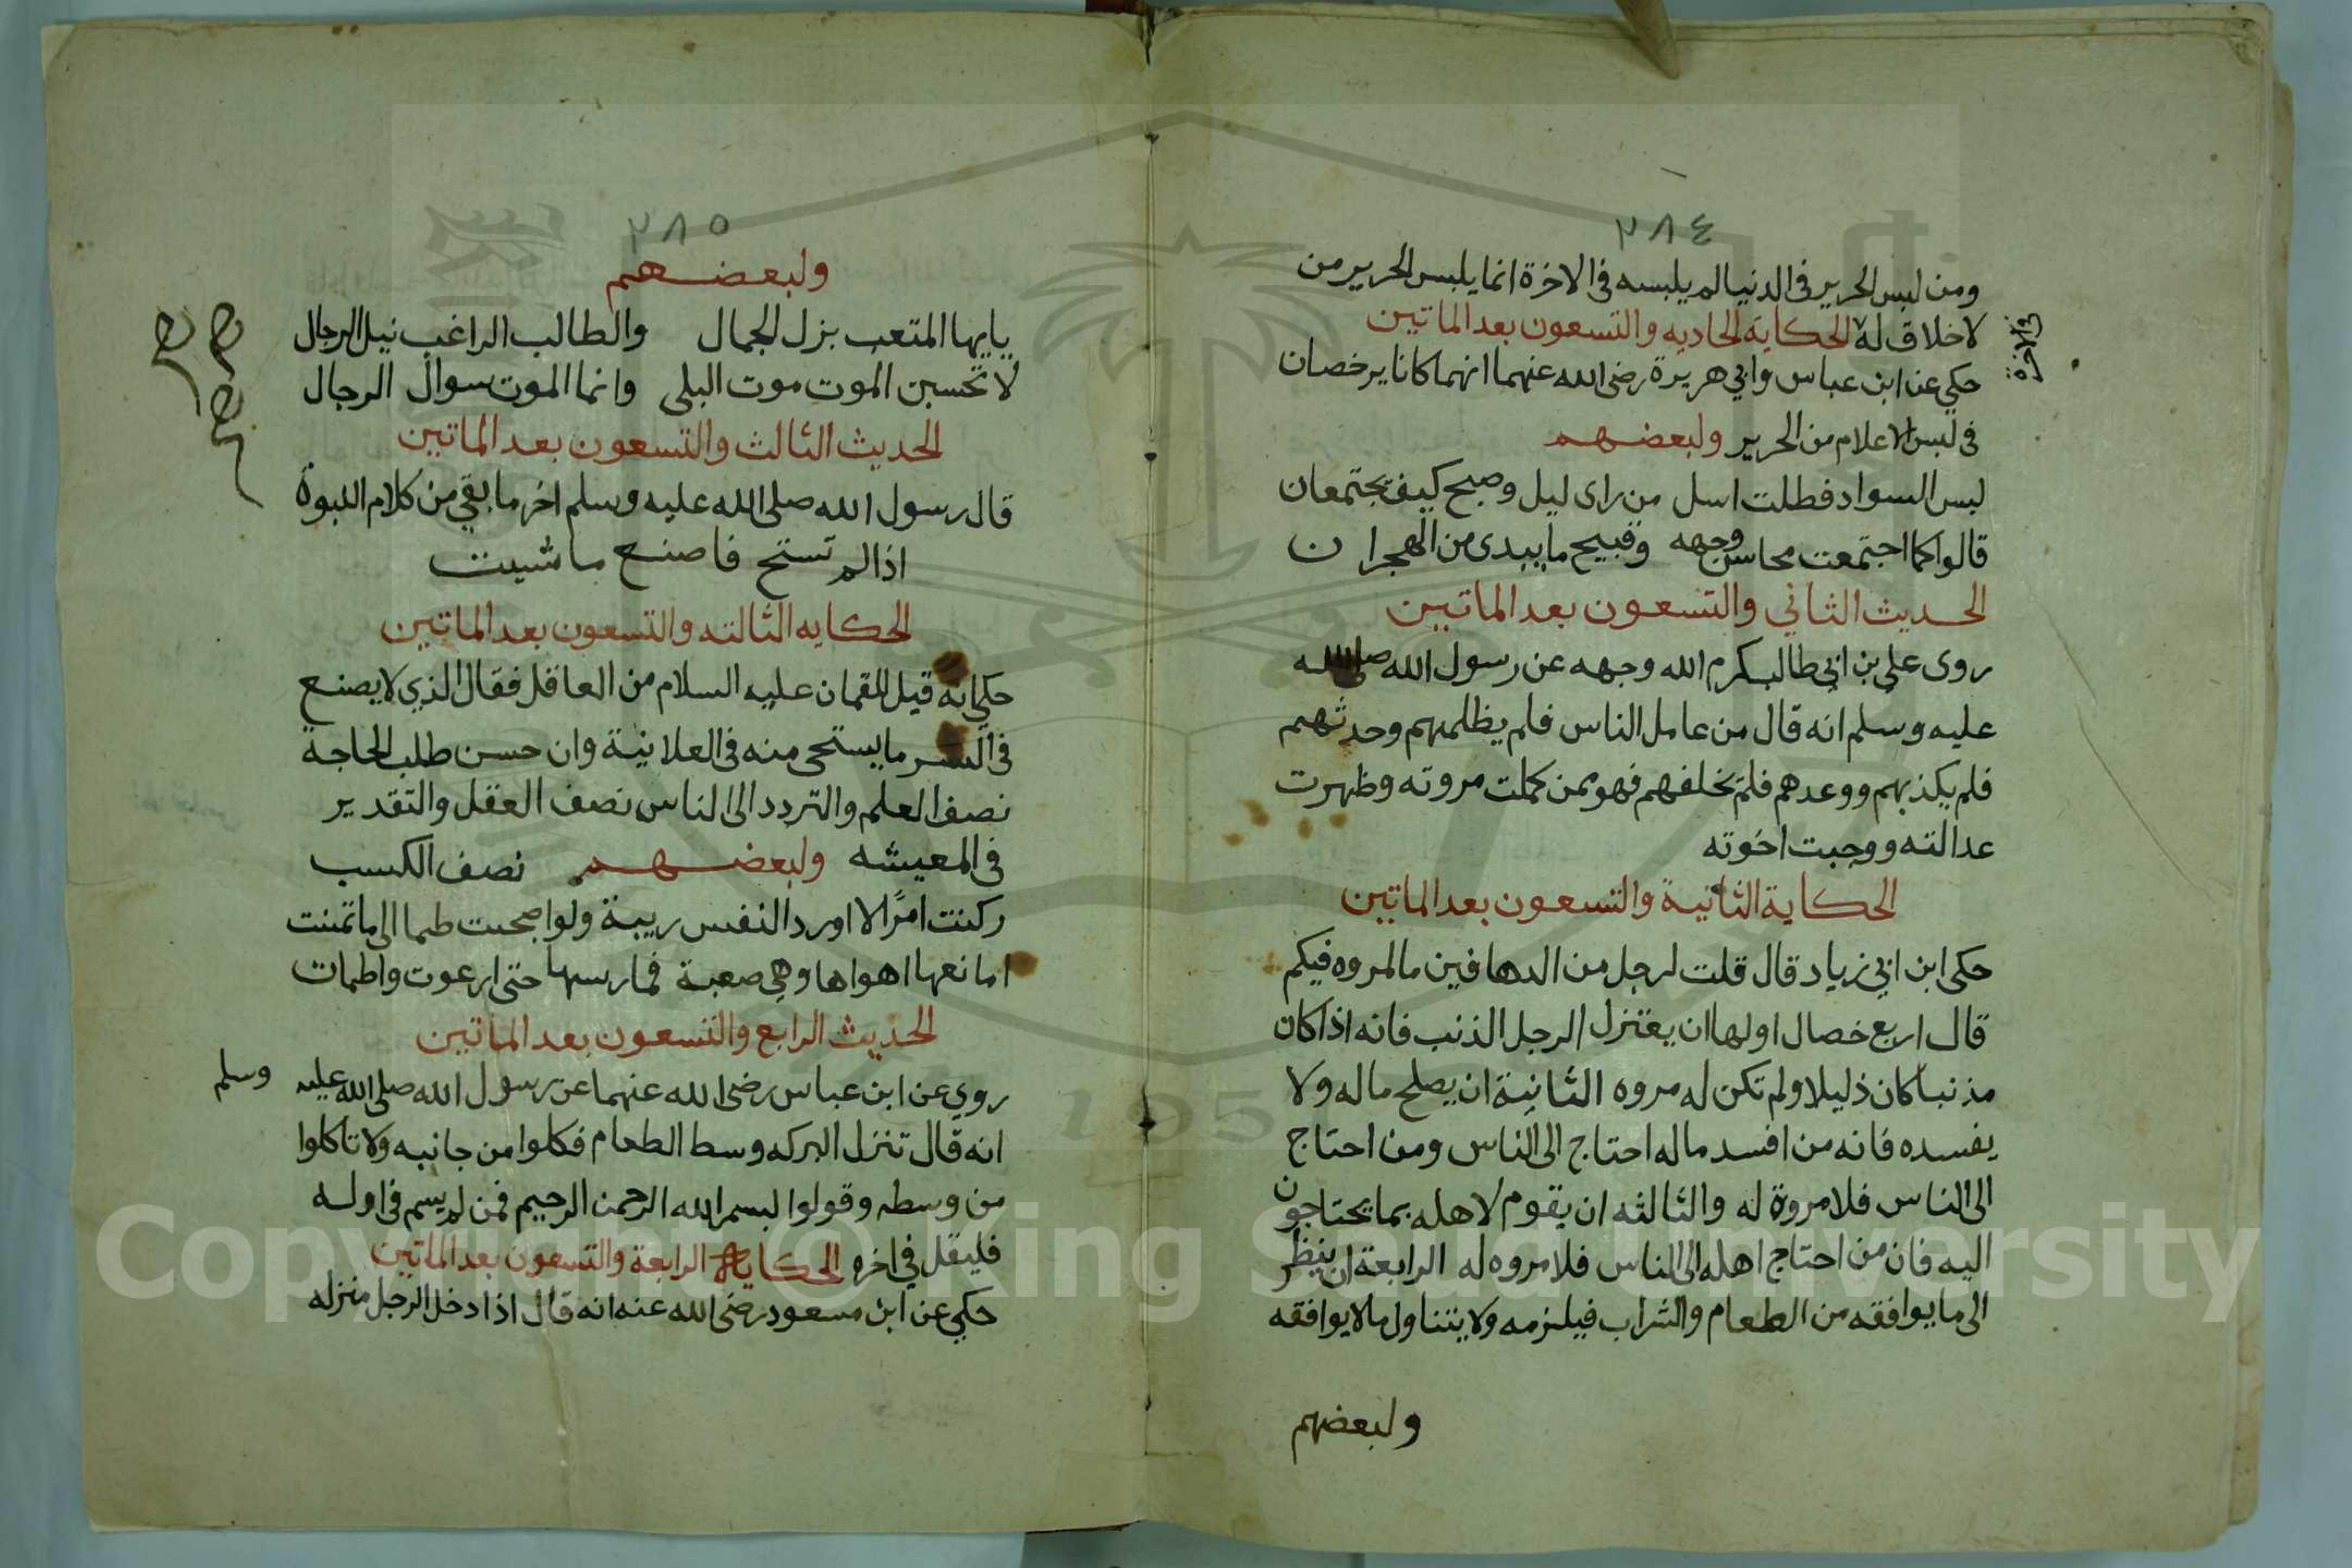 ٢٨٤
ومن لبس الحرير فى الدنيا لم يلبسه فى الاخرة انما يلبس الحرير من
لا خلاق له الحكاية الحاديه والتسعون بعد الماتين
فى الاخرة
حكي عن ابن عباس وابي هريرة رضى الله عنهما انهما كانا يرخصان
فى لبس الاعلام من الحرير ولبعضهم
لبس السواد فظلت اسل من راى ليل وصبح كيف يجتمعان
قالوا كما اجتمعت محاسن وجهه وقبيح ما يبدى من الهجران
الحديث الثاني والتسعون بعد الماتين
روى علي بن ابي طالب كرم الله وجهه عن رسول الله صلى الله
عليه وسلم انه قال من عامل الناس فلم يظلمهم وحدثهم
فلم يكذبهم ووعدهم فلم يخلفهم فهو ممن كملت مروته وظهرت
عدالته ووجبت اخوته
الحكاية الثانية والتسعون بعد الماتين
حكى ابن ابي زياد قال قلت لرجل من الدهاقين ما المروه فيكم
قال اربع خصال اولها ان يعتزل الرجل الذنب فانه اذا كان
مذنبا كان ذليلا ولم تكن له مروه الثانية ان يصلح ماله ولا
يفسده فانه من افسد ماله احتاج الى الناس ومن احتاج
الى الناس فلا مروة له والثالثه ان يقوم لاهله بما يحتاجون
اليه فان من احتاج اهله الى الناس فلا مروه له الرابعة ان ينظر
الى ما يوافقه من الطعام والشراب فيلزمه ولا يتناول ما لا يوافقه
ولبعضهم
٢٨٥
ولبعضهم
يايها المتعب بزل الجمال والطالب الراغب نيل الرجال
لا تحسبن الموت موت البلى وانما الموت سوال الرجال
الحديث الثالث والتسعون بعد الماتين
قال رسول الله صلى الله عليه وسلم اخر ما بقي من كلام النبوة
اذا لم تستح فاصنع ما شيت
الحكايه الثالثه والتسعون بعد الماتين
حكاية قيل للقمان عليه السلام من العاقل فقال الذي لا يصنع
فى السر ما يستحى منه فى العلانية وان حسن طلب الحاجة
نصف العلم والتردد الى الناس نصف العقل والتقدير
فى المعيشه ولبعضهم نصف الكسب
وكنت امرًا لا اورد النفس ريبة ولو اصبحت طما الى ما تمنت
امانعها اهواها وهي صعبة فمارسها حتى ارعوت واطمات
الحديث الرابع والتسعون بعد الماتين
روي عن ابن عباس رضى الله عنهما عن رسول الله صلى الله عليه وسلم
انه قال تنزل البركه وسط الطعام فكلوا من جانبه ولا تاكلوا
من وسطه وقولوا بسم الله الرحمن الرحيم فمن لم يسم فى اوله
فليقل في اخره الحكاية الرابعة والتسعون بعد الماتين
حكي عن ابن مسعود رضى الله عنه انه قال اذا دخل الرجل منزله
Copyright © King Saud University
195